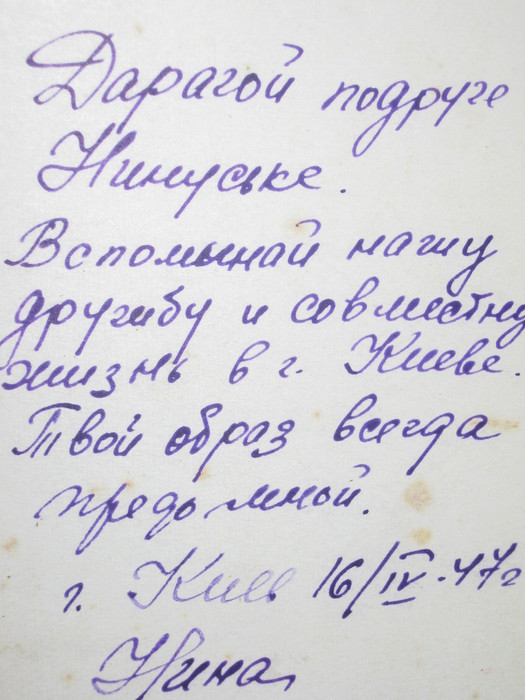 Дарагой подруге
Нинуське.
Вспомынай нашу
дружбу и совместну
жизнь в г. Киеве.
Твой образ всегда
предо мной.
г. Киев 16/IV-47г
Нина